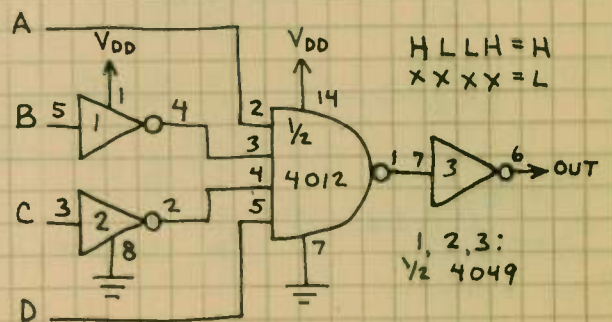 A
VDD
VDD
H L L H = H
X X X X = L
B 5 1 1 4
2 14
1/2
3
4012
4
5
1 7 3 6 OUT
C 3 2 2
8
7
1, 2, 3:
1/2 4049
D